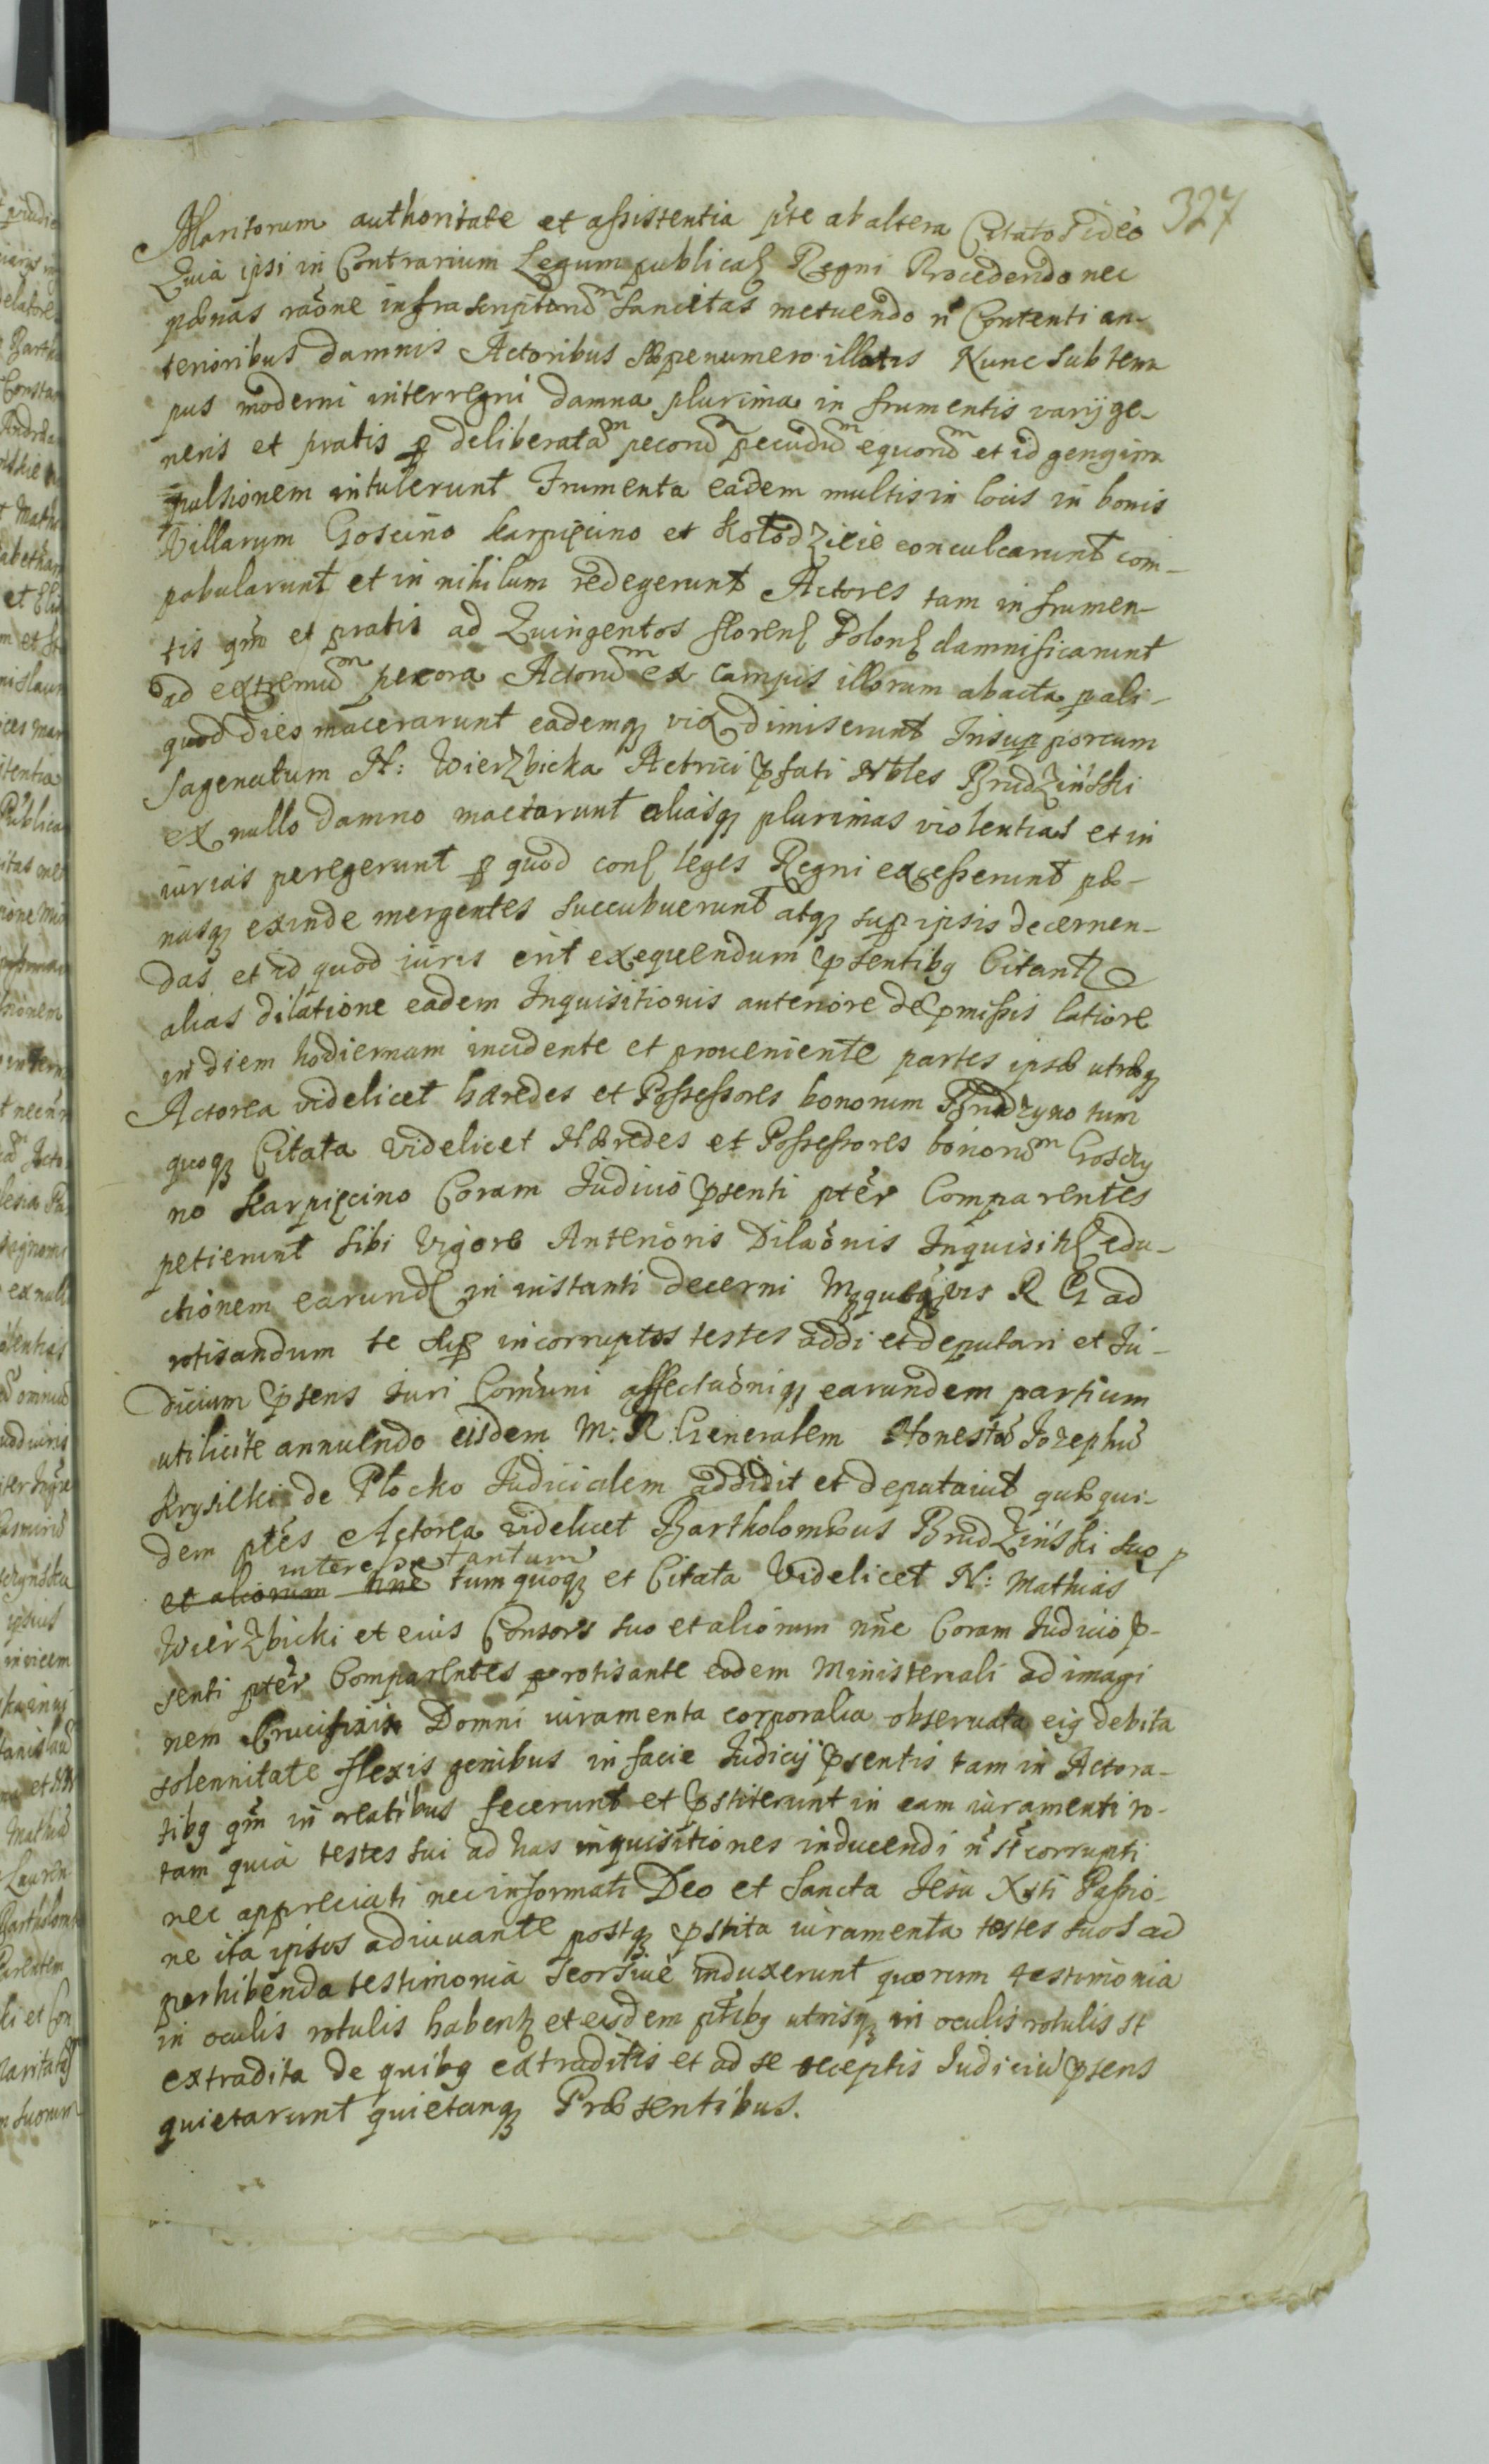 327
Maritorum authoritate et assistentia pte ab altera Citatos ideo
Quia ipsi in Contrarium Legum publicaȥ Regni Procedendo nec
pænas raõne infrascriptorum sancitas metuendo ñ Contenti an-
terioribus damnis Actoribus sæpenumero illatis Nunc sub tem
pus moderni interregni damna plurima in frumentis varij ge-
neris et pratis ꝑ deliberatam pecorum pecudum equorum et id gen9im
pulsionem intulerunt Frumenta eadem multis in locis in bonis
Villarum Goscino Karpięcino et Kołodzieie conculcarunt com-
pabularunt et in nihilum redegerunt Actores tam in frumen-
tis qm̃ et pratis ad Quingentos florenȥ Polonȥ damnificarunt
ad extremum pecora Actorum ex campis illorum abacta ꝑ ali-
quod dies macerarunt eademqȝ vix dimiserunt Insuꝑ porcum
sagenatum N: Wierzbicka Actrici ꝑfati Nbles Brudziński
ex nullo damno mactarunt aliasqȝ plurimas violentias et in
iurias peregerunt ꝑ quod conȥ leges Regni excesserunt pæ-
nasqȝ exinde mergentes succubuerunt atqȝ suꝑ ipsis decernen-
das et id quod iuris erit exequendum ꝑsentibꝰ Citantȥ
alias dilatione eadem Inquisitionis anteriore de ꝑmissis latiore
in diem hodiernam incidente et proueniente partes ipsæ utræqȝ
Actorea videlicet hæredes et Possessores bonorum Brudzyno tum
quoqȝ Citata Videlicet Hæredes et Possessores bonorum Goszczy
no Karpięcino Coram Iudicio ꝑsenti ptẽr Comparentes
petierunt sibi Vigore Anterioris Dilaõnis Inquisitȥ edu-
ctionem earundȥ in instanti decerni Mqȝ quẽqȝvis R G ad
rotisandum te suꝑ incorruptos testes addi et deputari et Iu-
dicium ꝑsens Iuri Comuni affectaõniqȝ earundem partium
utilicite annuendo eisdem M: R: Generalem Honestũ Iozephũ
Krysilki de Płocko Iudicialem addidit et deputauit quæ qui-
dem ptes Actorea videlicet Bartholomæus Brudziński suo
interesse tantum
et aliorum nñe tum quoqȝ et Citata Videlicet N: Mathias
Wierzbicki et eius Consors suo et aliorum nñe Coram Iudicio ꝑ-
senti ptẽr Comparentes rotisante eodem Ministeriali ad imagi
nem Crucifixi Domni iuramenta corporalia obseruata eiꝰ debita
solennitate flexis genibus in facie Iudicij ꝑsentis tam in Actora-
tibꝰ qm̃ in reatibus fecerunt et ꝑstiterunt in eam iuramenti ro-
tam quia testes sui ad has inquisitiones inducendi ñ st̃ corrupti
nec appreciati nec informati Deo et Sancta Iesu Xsti Passio-
ne ita ipsos adiuuante postqȝ ꝑstita iuramenta testes suos ad
perhibenda testimonia seorsiue induxerunt quorum testimonia
in oculis rotulis habentȥ et eisdem ptibꝰ utrisqȝ in oculis rotulis st
extradita de quibꝰ extraditis et ad se receptis Iudiciũ ꝑsens
quietarunt quietanqȝ Præsentibus.